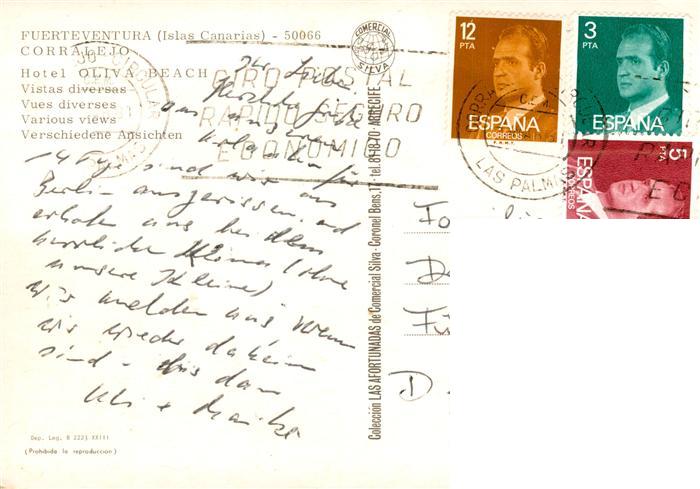 FUERTEVENTURA (Islas Canarias) - 50066
CORRALEJO
Hotel OLIVA BEACH
Vistas diversas
Vues diverses
Various views
Verschiedene Ansichten
GIRO POSTAL
RAPIDO SEGURO
ECONOMICO
Ihr Lieben
Herzliche Grüße
aus unserem
Urlaub. Für
14 Tage sind wir aus
Berlin ausgerissen und
erholen uns bei dem
herrlichen Klima (ohne
unsere Kleine)
Wir melden uns wenn
wir wieder daheim
sind - Bis dann
Uli +
Dep. Leg. B 2223 XXIII
(Prohibida la reproducción)
COMERCIAL
SILVA
Colección LAS AFORTUNADAS de Comercial Silva - Coronel Bens, 17 - tel. 81-18-70 - ARRECIFE
12
PTA
ESPAÑA
CORREOS
F.N.M.T.
3
PTA
ESPAÑA
5
PTA
ESPAÑA
CORREOS
LAS PALMAS
D